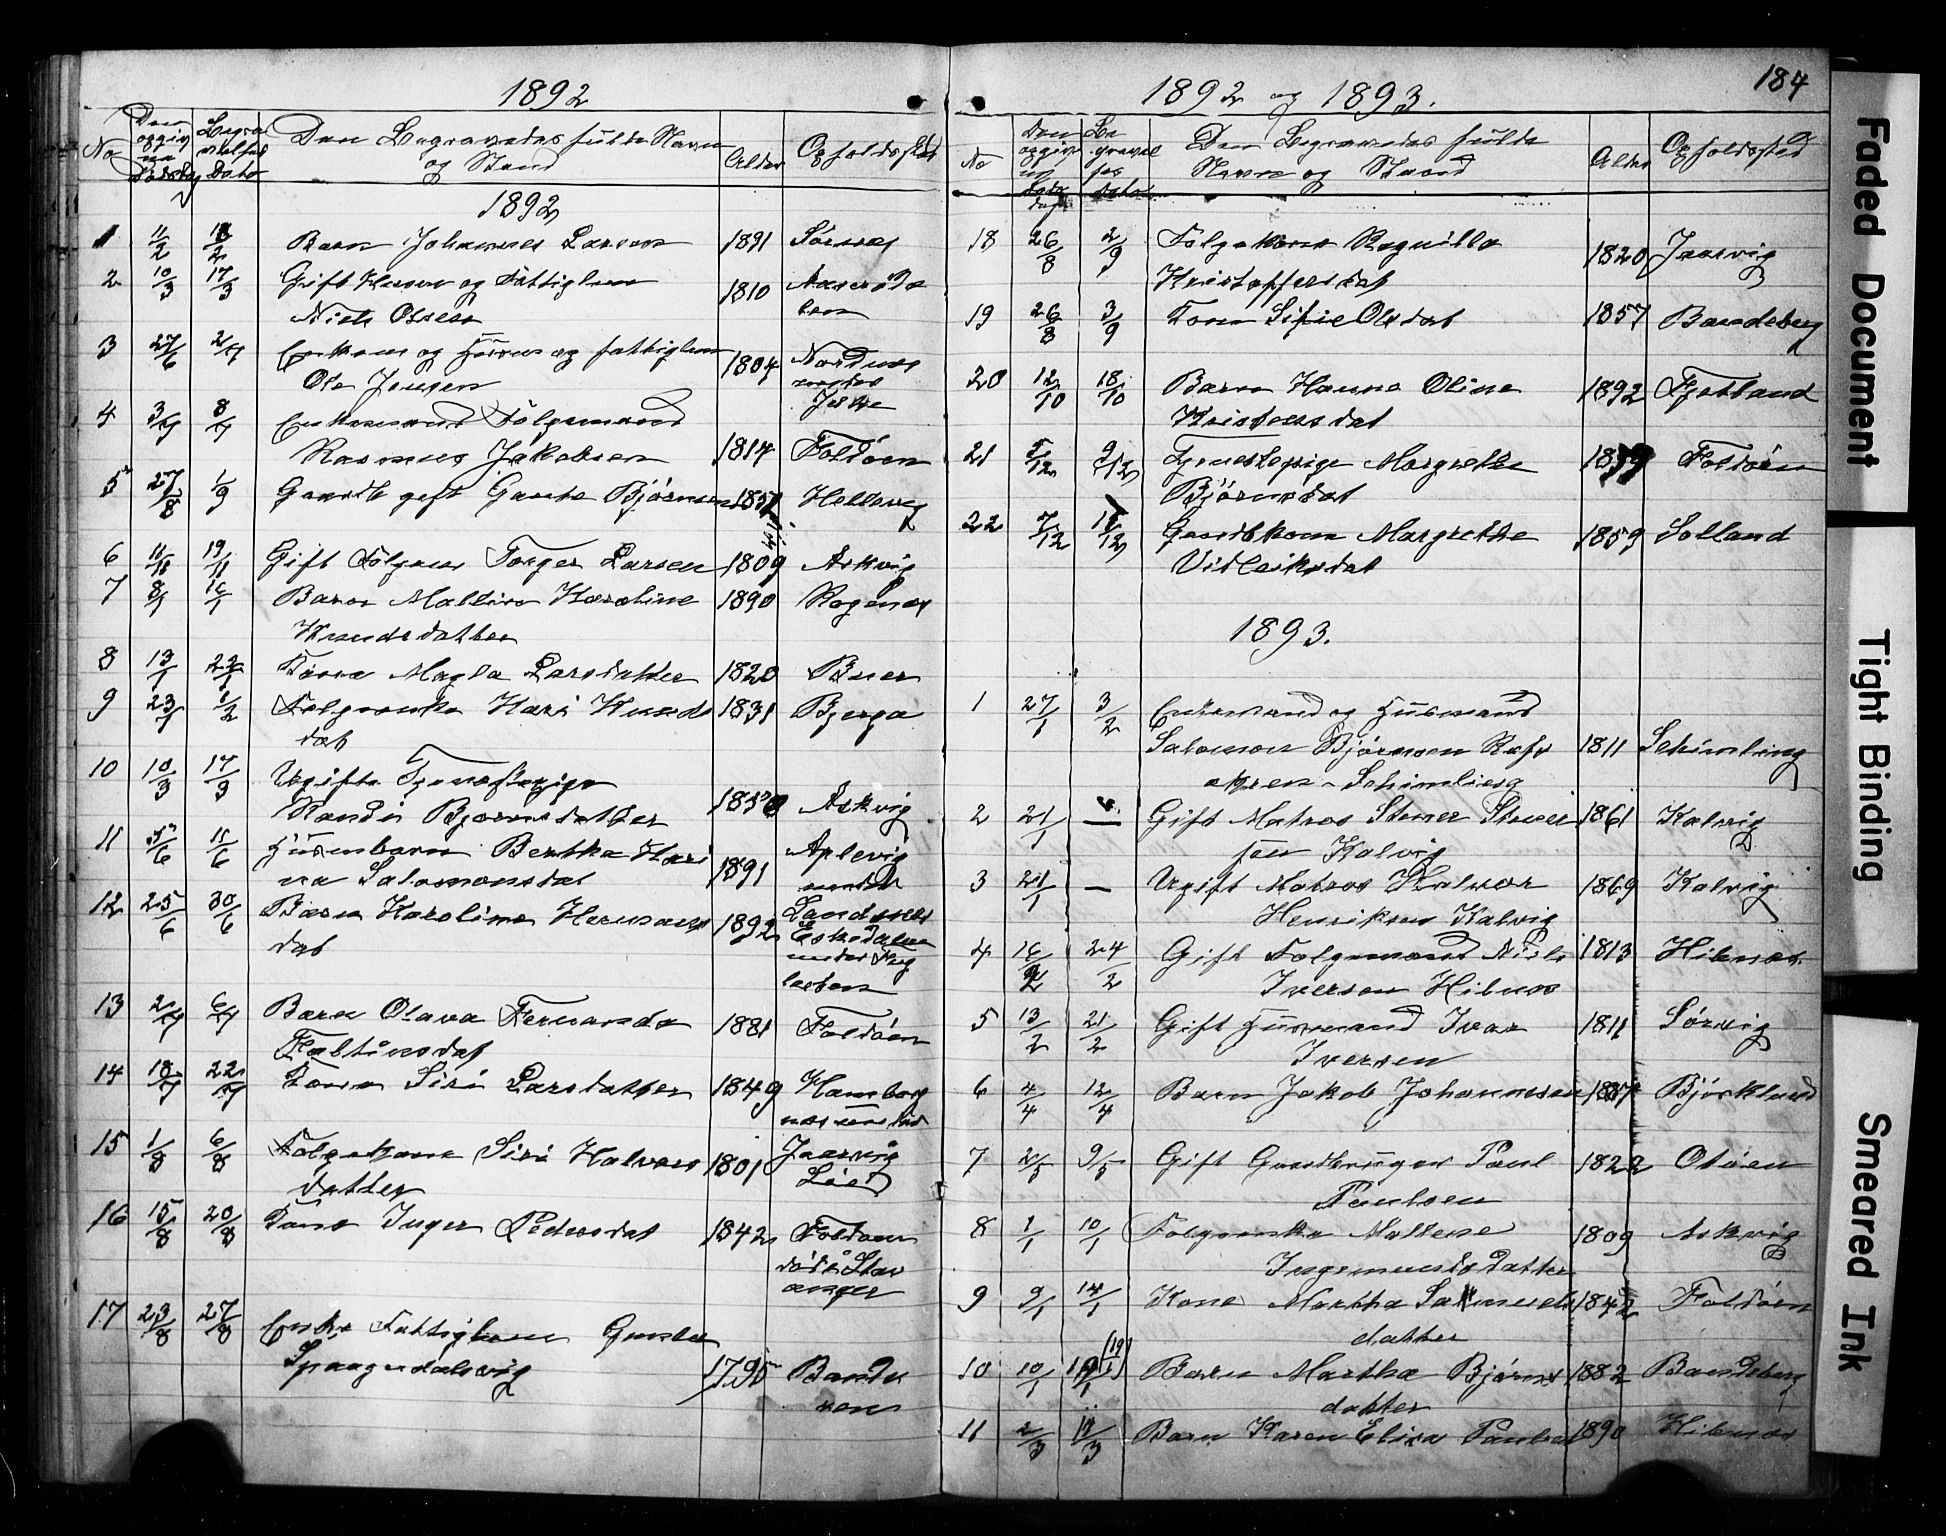 1892
No
Den opgivne Dødsdag
Begravelses Dato
Den Begravedes fulde Navn
og Stand
Alder
Opholdssted
1892
1 11/2 18/2 Barn Johannes Larsen 1891 Sørvig
2 10/3 17/3 Gift Husm og Fattiglem
Niels Olsen 1810
3 27/6 2/7 Enkem og Husm og fattiglem
Ole Jensen 1804
4 3/7 8/7 Enkemand Følgemand
Rasmus Jakobsen 1814 Foldøen
5 27/8 1/9 Gaardb gift Gaute Bjørnsen 1857 Hellevig
6 11/11 19/11 Gift Følgem Torger Larsen 1809 Askvig
7 8/1 16/1 Barn Malline Karoline
Knudsdatter 1890
8 13/1 22/1 Kone Magla Larsdatter 1820 Buer
9 23/1 2/2 Følgeenke Kari Knuds
dat 1831 Bjerga
10 10/3 17/3 Ugifte Tjenestepige
Randi Bjørnsdatter 1850 Askvig
11 5/6 11/6 Husmbarn Bertha Kari
na Salomonsdat 1891 Aplevig
under
12 25/6 30/6 Barn Karoline Hermans
dat 1892 Landsnes
Eskedalen
under Fug
lesten
13 2/7 6/7 Barn Olava Fernanda
Faltinsdat 1881 Foldøen
14 18/7 22/7 Kone Siri Larsdatter 1849
15 1/8 6/8 Følgekone Siri Halvors
datter 1801 Jaarvig
16 15/8 20/8 Kone Inger Pedersdat 1842 Foldøen
død i Stav
anger
17 23/8 27/8 Enke Fattiglem
1795
184
1892 og 1893.
No
Den opgivne Dødsdag
Begravelses dato
Den Begravedes fulde
Navn og Stand
Alder
Opholdssted
18 26/8 2/9 Følgekone Ragnilla
Kristoffersdat 1820 Jaarvig
19 26/8 3/9 Kone Sifie Olsdat 1857 Bandeberg
20 12/10 18/10 Barn Hanne Oline
Kristensdat 1892 Fjetland
21 5/12 9/12 Tjenestepige Margrethe
Bjørnsdat Foldøen
22 7/12 Gaardbkone Margrethe
Vidleiksdat 1859 Solland
1893.
1 27/1 3/2 Enkemand og Husmand
Salomon Bjørnsen
1811
2 21/1 — Gift Matros Stener Stener
sen Kalvig 1861 Kalvig
3 21/1 — Ugift Matros Halvor
Henriksen Kalvig 1869 Kalvig
4 16/2 24/2 Gift Følgemand Niels
Iversen Hilnes 1813 Hilnes
5 13/2 21/2 Gift Husmand Ivar
Iversen 1811 Sørvig
6 4/4 12/4 Barn Jakob Johannesen Bjørklund
7 2/5 9/5 Gift Gaardbruger Paul
Paulsen 1822 Otøen
8 1/1 10/1 Følgeenke Maltene
Ingemundsdatter 1809 Askvig
9 9/1 14/1 Kone Martha Samuels
datter 1842 Foldøen
10 10/1 19/1 (19/1) Barn Martha Bjørns
datter 1882 Bandeberg
11 2/3 11/3 Barn Karen Elisa Paulsd 1890 Hilnes
Faded Document
Tight Binding
Smeared Ink